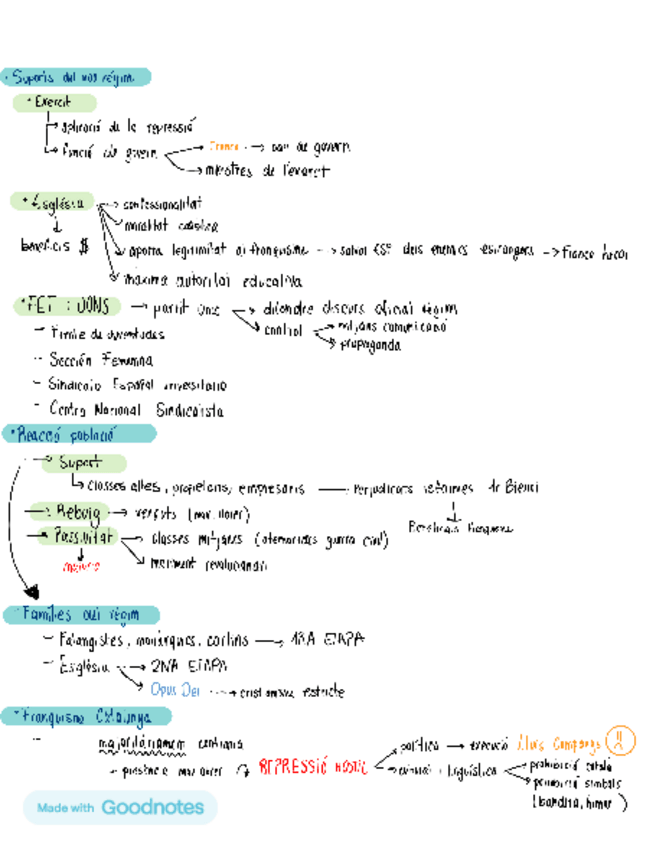 · Suports del nou règim
· Exercit
→ aplicació de la repressió
→ funció de govern → Franco → cap de govern
→ ministres de l'exercit
· Església → confessionalitat
↓ → moralitat catòlica
beneficis $ → aporta legitimitat al franquisme → salvat ESP dels enemics estrangers → Franco heroi
→ màxima autoritat educativa
· FET i JONS → partit únic → difondre discurs oficial règim
→ control → mitjans comunicació
→ propaganda
- Frente de Juventudes
- Sección Femenina
- Sindicato Español universitario
- Centro Nacional Sindicalista
· Reacció població
→ Suport
↳ classes altes, propietaris, empresaris — perjudicats reformes 1r Bienni
→ Rebuig → vençuts (mov. obrer)
→ Passivitat → classes mitjanes (atemorides guerra civil)
↓ → moviment revolucionari
majoria
· Famílies del règim
- Falangistes, monàrquics, carlins → 1RA ETAPA
- Església → 2NA ETAPA
→ Opus Dei → cristianisme
· Franquisme Catalunya
- majoritàriament contraria
- presència mov obrer → REPRESSIÓ HOSTIL → política → execució Lluís Companys !!
→ cultural i lingüística → prohibició català
→ prohibició símbols
(bandera, himne)
Made with Goodnotes